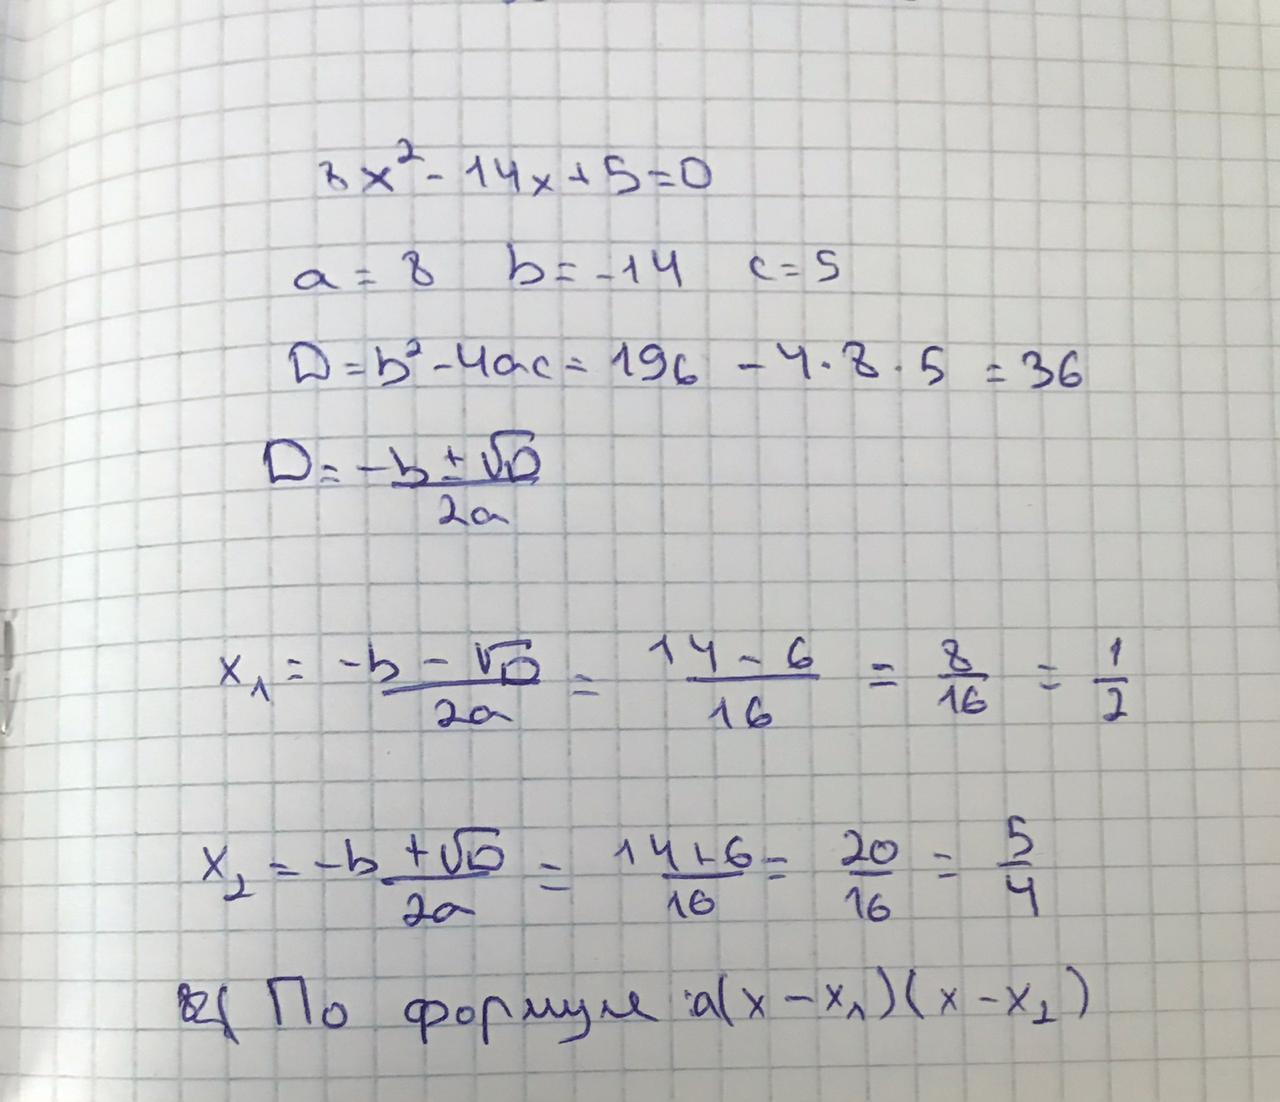 8x² - 14x + 5 = 0
a = 8 b = -14 c = 5
D = b² - 4ac = 196 - 4 · 8 · 5 = 36
D = -b ± √D / 2a
x₁ = -b - √D / 2a = 14 - 6 / 16 = 8/16 = 1/2
x₂ = -b + √D / 2a = 14 + 6 / 16 = 20/16 = 5/4
По формуле : a(x - x₁)(x - x₂)